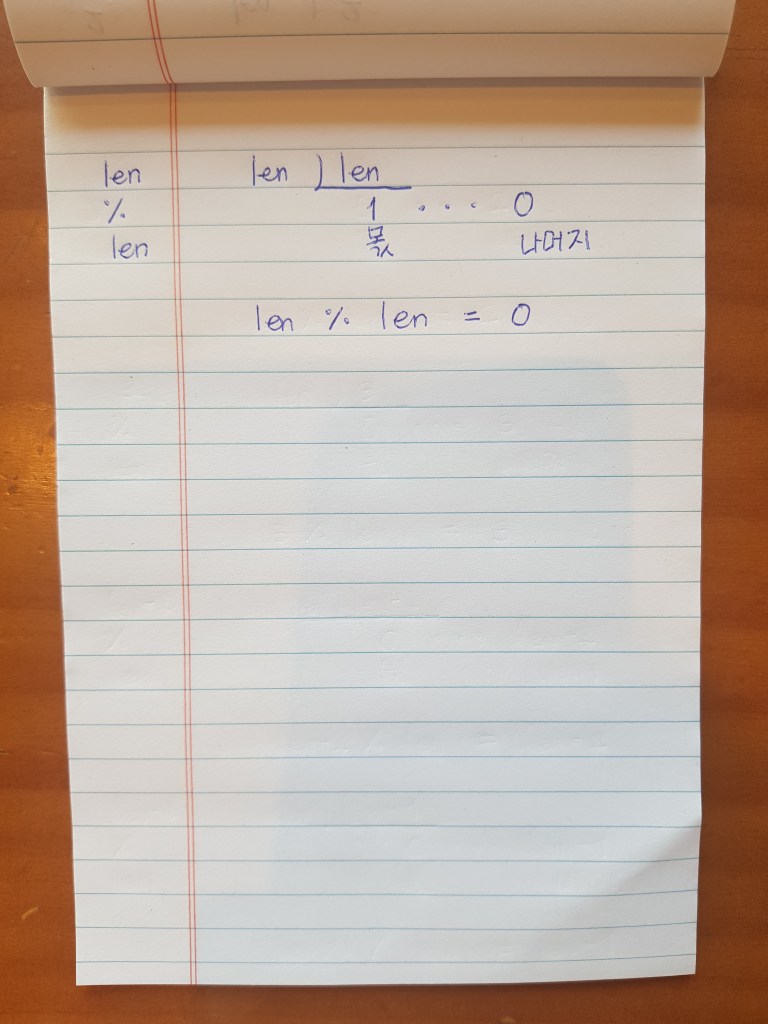 len len ) len
% 1 . . . 0
len 몫 나머지
len % len = 0